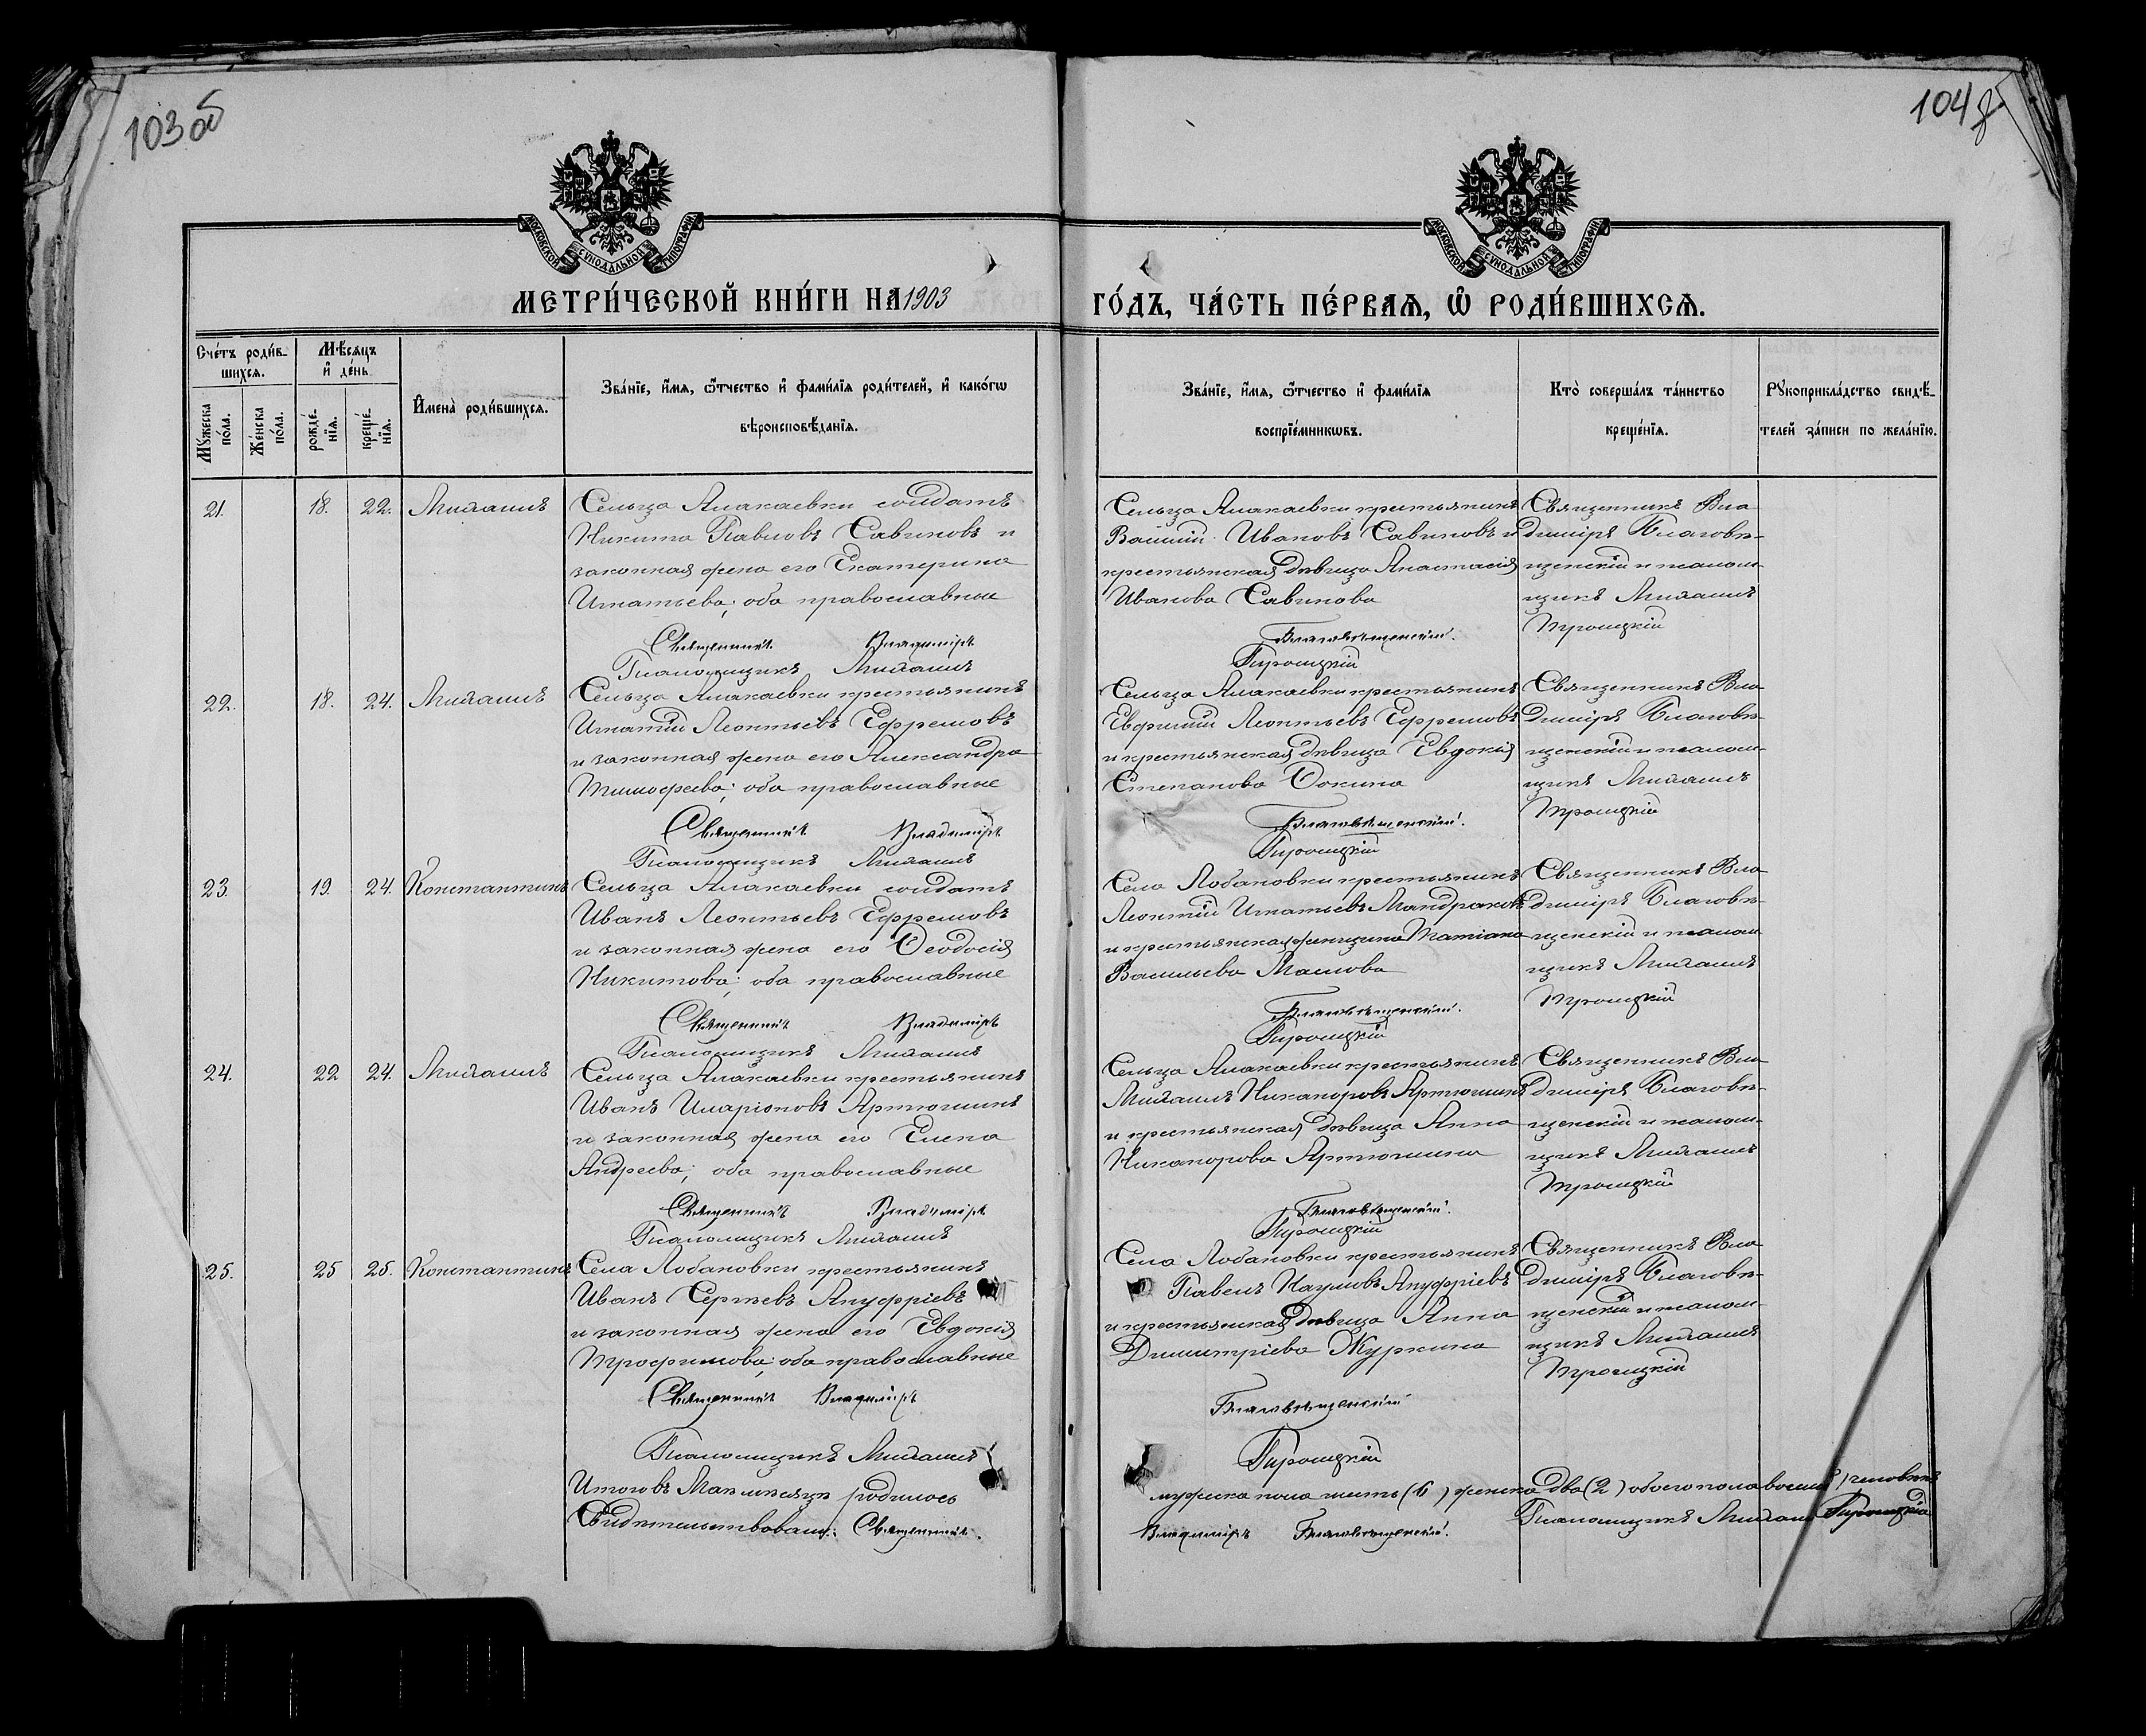 103 об
104
МОСКОВСКОЙ СѴНОДАЛЬНОЙ ТИПОГРАФІИ
МОСКОВСКОЙ СѴНОДАЛЬНОЙ ТИПОГРАФІИ
МЕТРИ́ЧЕСКОЙ КНИ́ГИ НА 1903
ГО́ДЪ, ЧА́СТЬ ПЕ́РВАѦ, Ѿ РОДИ́ВШИХСѦ.
Сче́тъ роди́в-
шихсѧ.
Мѣ́сѧцъ
и҆ де́нь
Мꙋ́жеска по́ла.
Же́нска по́ла.
рожде́-нїѧ.
креще́-нїѧ.
И҆мена̀ роди́вшихсѧ.
Зва́нїе, и҆́мѧ, ѻ҆́тчество и҆ фами́лїѧ роди́телей, и҆ како́гѡ
вѣроисповѣ́данїѧ.
Зва́нїе, и҆́мѧ, ѻ҆́тчество и҆ фами́лїѧ
воспрїе́мникѡвъ.
Кто̀ соверша́лъ та́инство
креще́нїѧ.
Рꙋкоприкла́дство свидѣ́-
телей за́писи по жела́нїю.
21. 18. 22. Михаилъ
Сельца Алакаевки солдатъ
Никита Павловъ Савиновъ и
законная жена его Екатерина
Игнатьева; оба православные
Священникъ Владиміръ
Псаломщикъ Михаилъ
Сельца Алакаевки крестьянинъ
Василій Ивановъ Савиновъ и
крестьянская дѣвица Анастасія
Иванова Савинова
Благовѣщенскій.
Троицкій
Священникъ Вла
диміръ Благовѣ-
щенскій и псалом-
щикъ Михаилъ
Троицкій
22. 18. 24. Михаилъ
Сельца Алакаевки крестьянинъ
Игнатій Леонтьевъ Ефремовъ
и законная жена его Александра
Тимофеева; оба православные
Священникъ Владиміръ
Псаломщикъ Михаилъ
Сельца Алакаевки крестьянинъ
Евфимій Леонтьевъ Ефремовъ
и крестьянская дѣвица Евдокія
Степанова
Благовѣщенскій.
Троицкій
Священникъ Вла-
диміръ Благовѣ-
щенскій и псалом-
щикъ Михаилъ
Троицкій
23. 19. 24. Константинъ
Сельца Алакаевки солдатъ
Иванъ Леонтьевъ Ефремовъ
и законная жена его Ѳеодосія
Никитова; оба православные
Священникъ Владиміръ
Псаломщикъ Михаилъ
Села Лобановки крестьянинъ
Леонтій Игнатьевъ Мандраковъ
и крестьянская женщина Татіана
Васильева Маслова
Благовѣщенскій.
Троицкій
Священникъ Вла-
диміръ Благовѣ-
щенскій и псалом
щикъ Михаилъ
Троицкій
24. 22 24. Михаилъ
Сельца Алакаевки крестьянинъ
Иванъ Иларіоновъ Артюшинъ
и законная жена его Елена
Андреева; оба православные
Священникъ Владиміръ
Псаломщикъ Михаилъ
Сельца Алакаевки крестьянинъ
Михаилъ Никаноровъ Артюшинъ
и крестьянская дѣвица Анна
Никанорова Артюшина
Благовѣщенскій.
Троицкій
Священникъ Вла-
диміръ Благовѣ-
щенскій и псалом-
щикъ Михаилъ
Троицкій
25. 25 25. Константинъ
Села Лобановки крестьянинъ
Иванъ Сергѣевъ Ануфріевъ
и законная жена его Евдокія
Трофимова; оба православные
Священникъ Владиміръ
Псаломщикъ Михаилъ
Села Лобановки крестьянинъ
Павелъ Наумовъ Ануфріевъ
и крестьянская дѣвица Анна
Димитріева Журкина
Благовѣщенскій
Троицкій
Священникъ Вла-
диміръ Благовѣ-
щенскій и псалом-
щикъ Михаилъ
Троицкій
Итого въ Маѣ мѣсяцѣ родилось
мужска пола шесть (6) женска два (2) обоего пола восемь человѣкъ
Свидѣтельствовали: Священникъ
Владиміръ Благовѣщенскій.
Псаломщикъ Михаилъ Троицкій